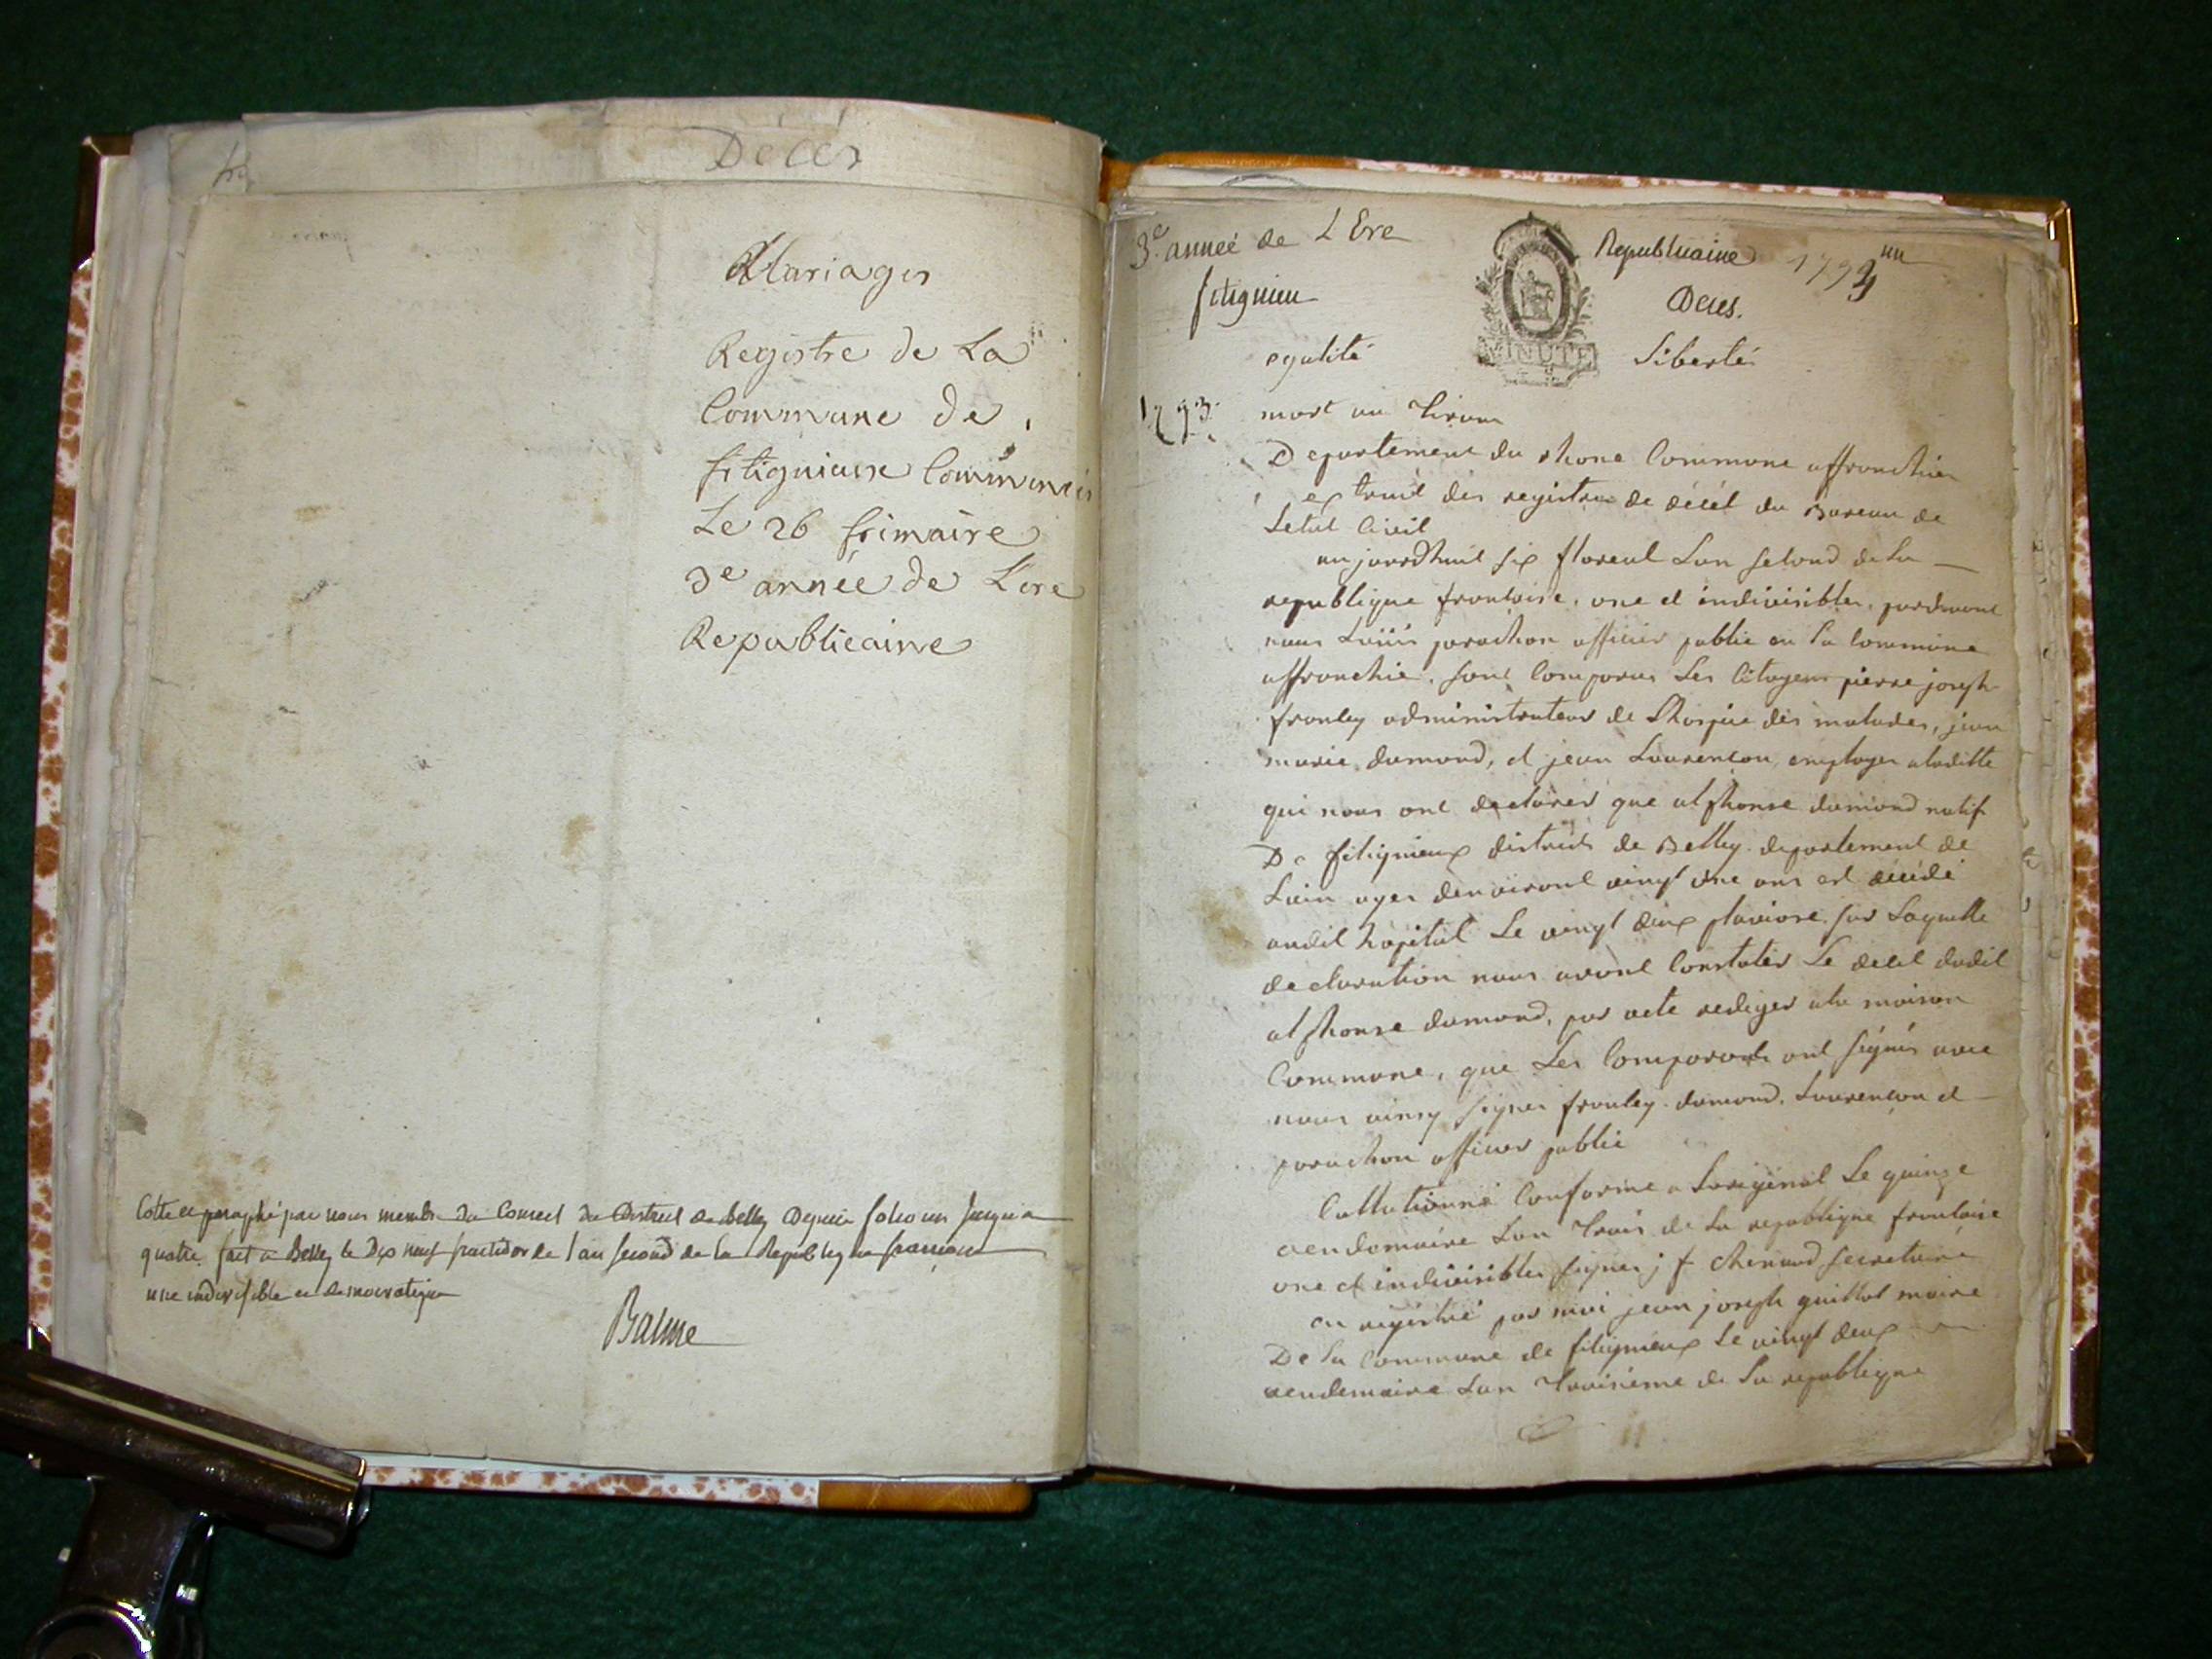 Décès
Mariages
Registre de La
Commune de
fitignieux Commencé
Le 26 frimaire
3e année de L'ere
Republicaine
Cotté et paraphé par nous membre du Conseil du District de belley Depuis folio un jusqu'a
quatre fait a Belley le Dix neuf fructidor de l'an second de la Republique française
une indivisible et democratique
Balme
3e. année de L'Ere Republicaine 1794
fitignieu Decès.
MINUTE
egalité Liberté
1793. mort au Tiran
Departement du rhone Commune affranchie
extrait des registre de décèt du Bureau de
Letat Civil
aujourdhuit six floreal Lan second de La
republique frontoise, une et indivisibles, pardevant
nous Loüis parachon officier public en La Commune
affranchie, sont Comparus Les Citoyens pierre joseph
frouley administrateur de Lhospice des malades, jean
marie dumond, et jean Laurencon, employer aladitte
qui nous ont declarés que alphonse dumond natif
De fitignieux districts de Belley departement de
Lain ager denviront vingt une ans est décédé
audit hopital Le vingt deux pluviose, sur Laquelle
declaration nous avont Constatés Le decet dudit
alphonse dumond, par acte rediger ala maison
Commune, que Les Comparants ont signés avec
nous ainsy signer frouley. dumond. Laurencon et
parachon officier public
Collationné Conforme a Loriginal Le quinze
vendemaire Lan trois de La republique frontoise
une et indivisibles signer j f Chenaud secretaire
en registré par moi jean joseph guillot maire
De La Commune de fitignieux Le vingt deux
vendemaire Lan troisième de La republique